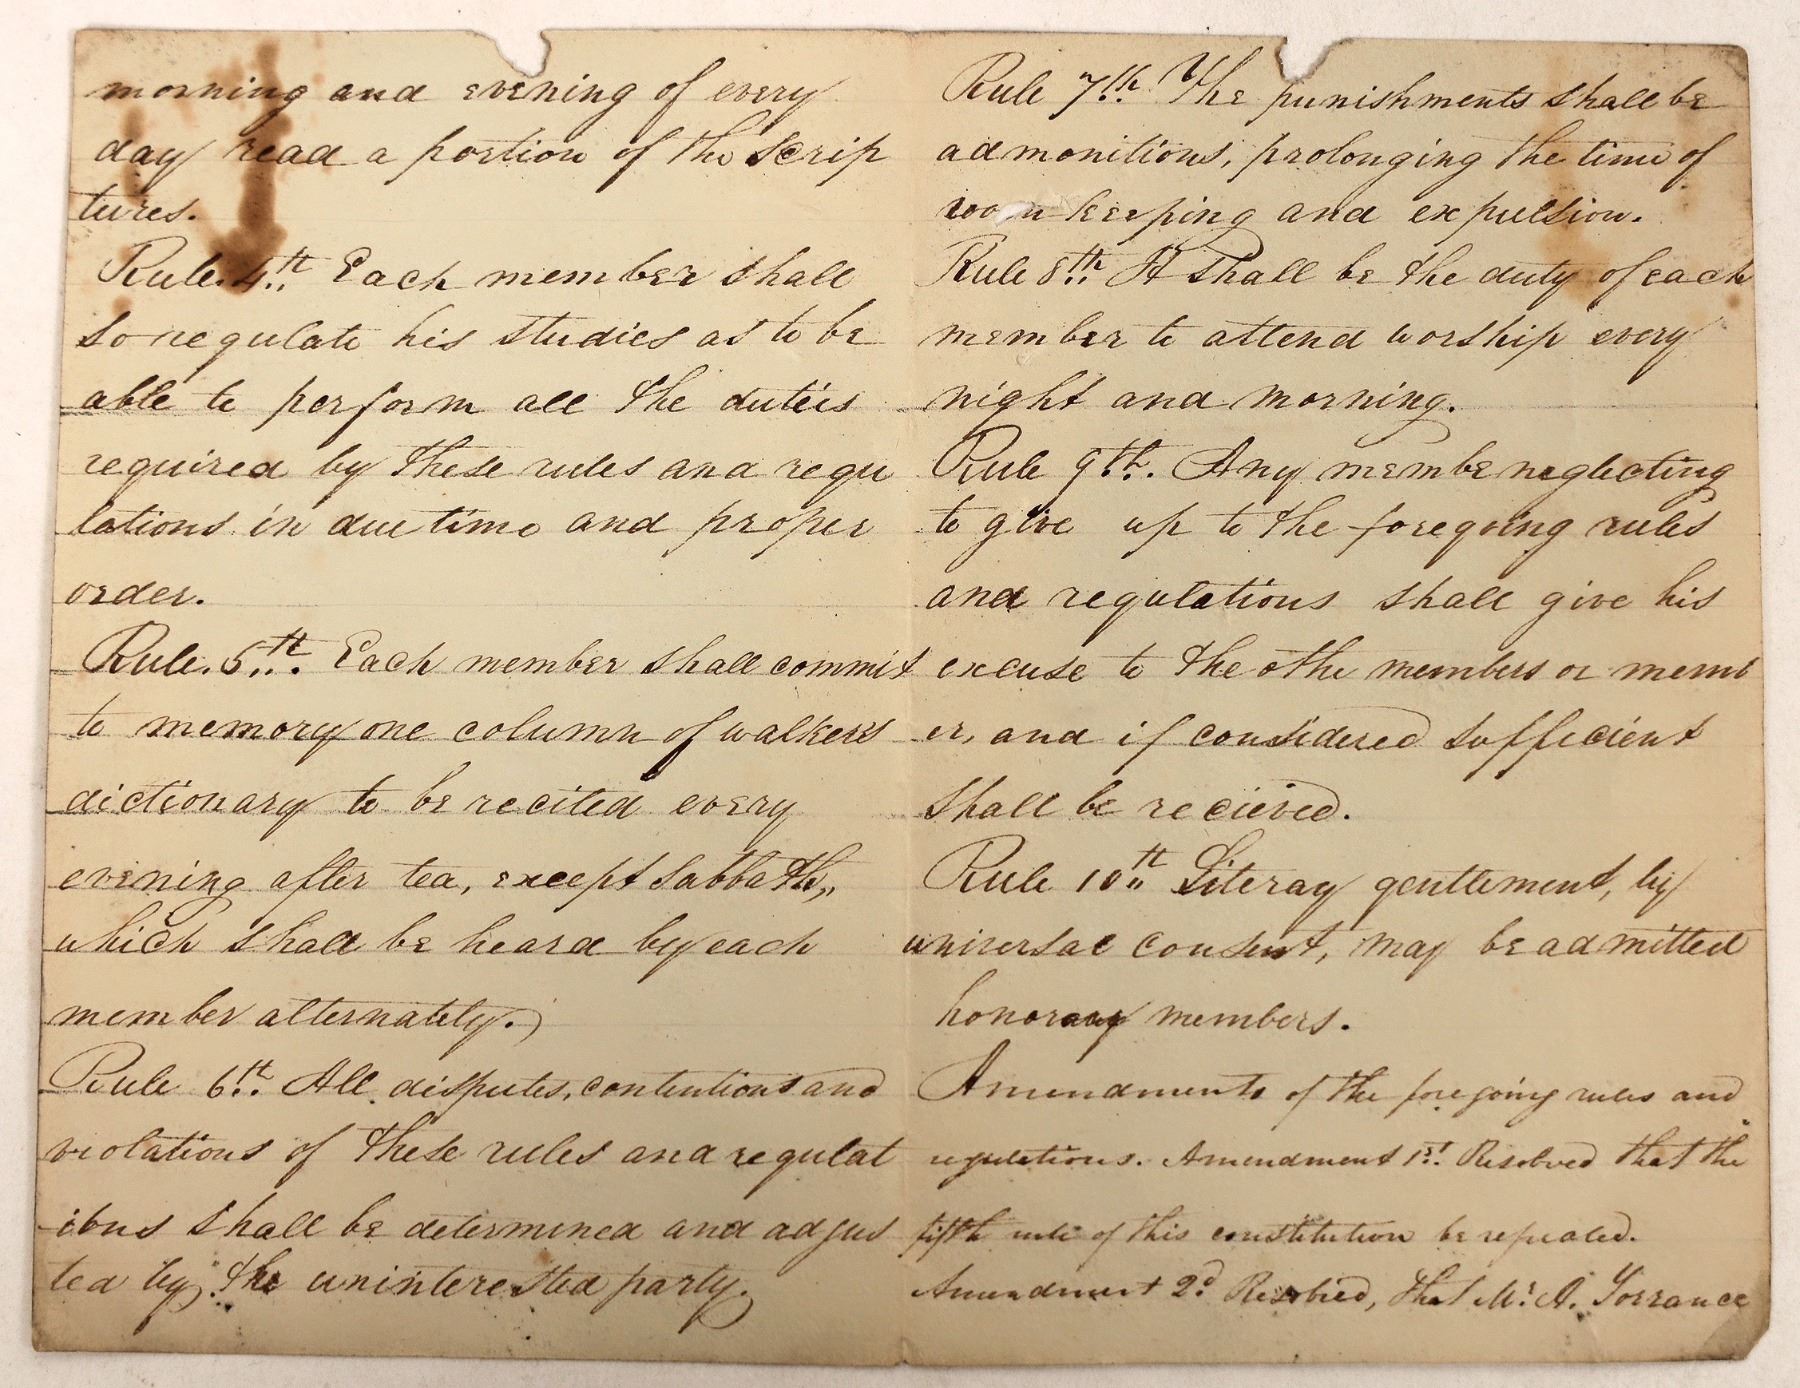 morning and evening of every
day read a portion of the Scrip
tures.
Rule. 4th. Each member shall
so regulate his studies as to be
able to perform all the duteis
required by these rules and regu
lations in due time and proper
order.
Rule. 5th. Each member shall commit
to memory one column of walkers
dictionary to be recited every
evening after tea, except Sabbath,,
which shall be heard by each
member alternately.
Rule 6th. All disputes, contentions and
violations of these rules and regulat
ions shall be determined and adjus
ted by the uninterested party.
Rule 7th. The punishments shall be
admonitions, prolonging the time of
room keeping and expulsion.
Rule 8th. It shall be the duty of each
member to attend worship every
night and morning.
Rule 9th. Any membe neglecting
to give up to the foregoing rules
and regulations shall give his
excuse to the othe members or memb
er, and if considered sufficient
shall be recieved.
Rule 10th Literay gentlement, by
universal consent, may be admitted
honorary members.
Amendments of the foregoing rules and
regulations. Amendment 1st. Resolved that the
fifth rule of this constitution be repealed.
Amendment 2d. Resolved, that Mr. A. Torrance